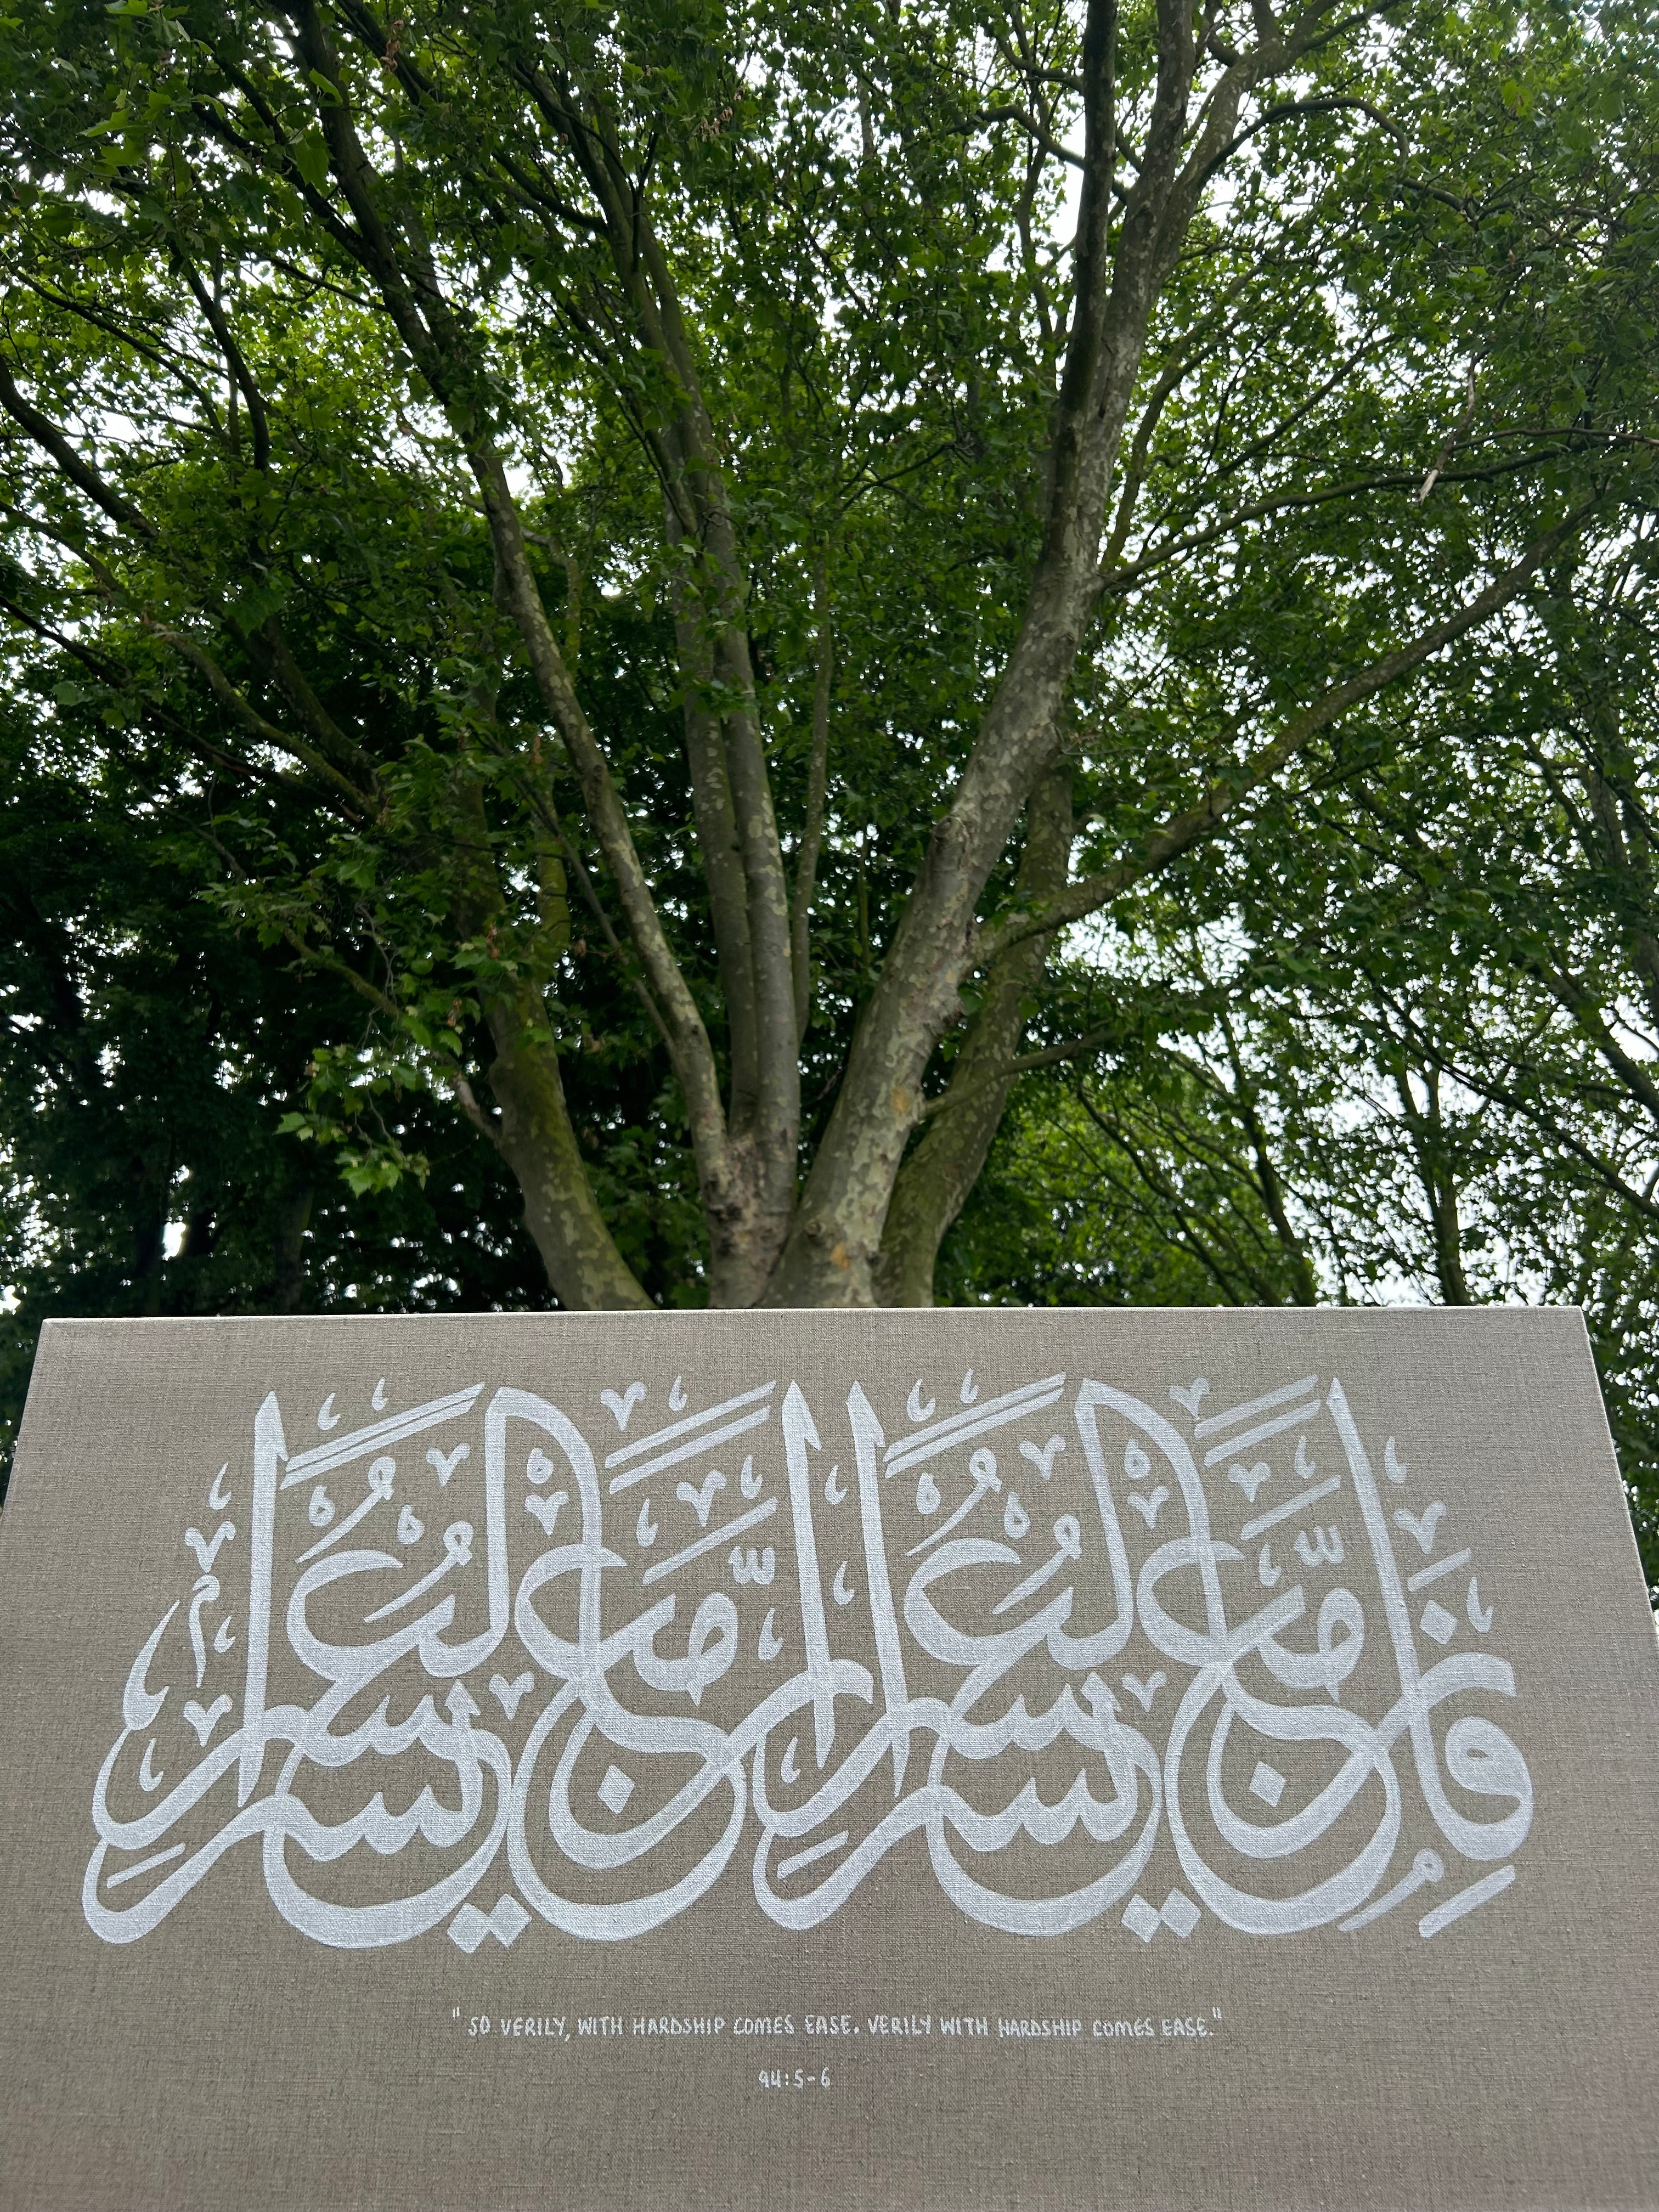 فَإِنَّ مَعَ الْعُسْرِ يُسْرًا إِنَّ مَعَ الْعُسْرِ يُسْرًا
"SO VERILY, WITH HARDSHIP COMES EASE. VERILY WITH HARDSHIP COMES EASE."
94:5-6